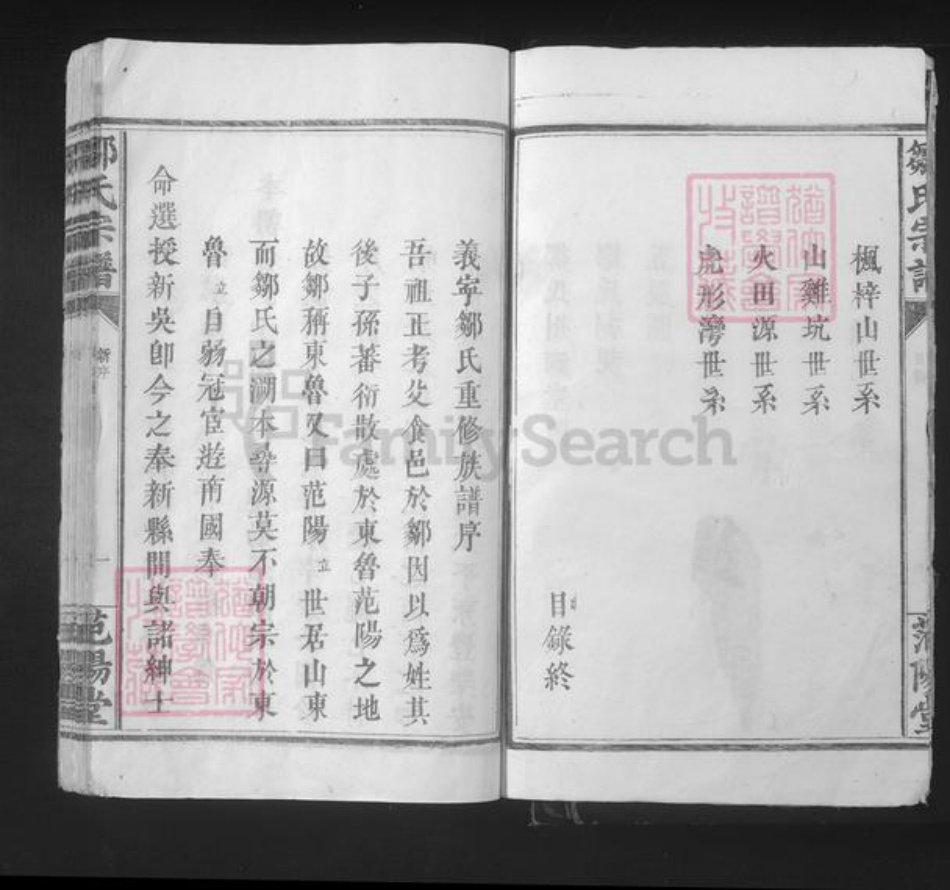 鄒氏宗譜
范陽堂
楓梓山世系
山雞坑世系
火田源世系
虎形灣世系
目錄終
義寧鄒氏重修族譜序
吾祖正考父食邑於鄒因以爲姓其
後子孫蕃衍散處於東魯范陽之地
故鄒稱東魯又曰范陽立世居山東
而鄒氏之溯本尋源莫不朝宗於東
魯立自弱冠宦遊南國奉
命選授新吳卽今之奉新縣間與諸紳士
鄒氏宗譜
新序
一
范陽堂
FamilySearch